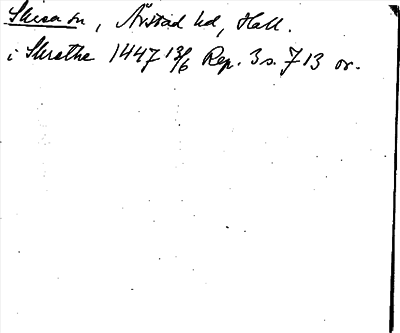 Skrea sn, Årstad hd, Hall.
i Skrethe 1447 13/6 Rep. 3 s. 713 or.